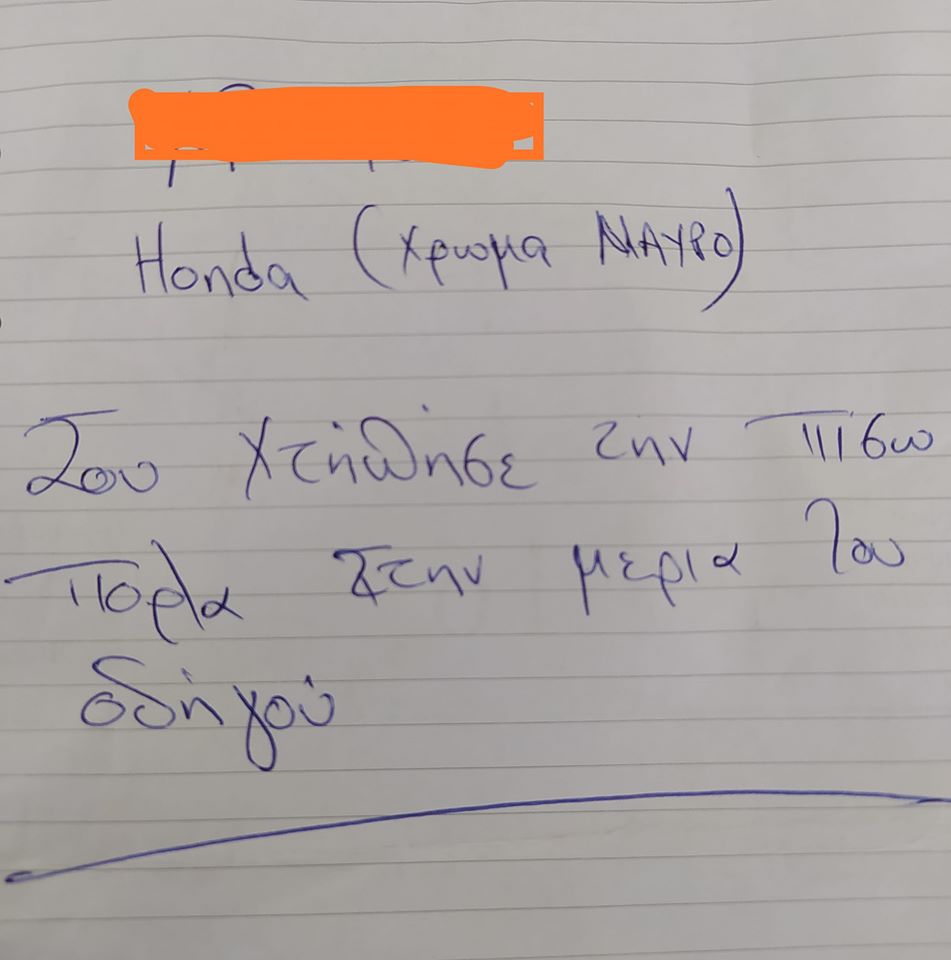 Honda (χρωμα ΜΑΥΡΟ)
Σου χτήπησε την πισω
πορτα Στην μερια του
οδήγού